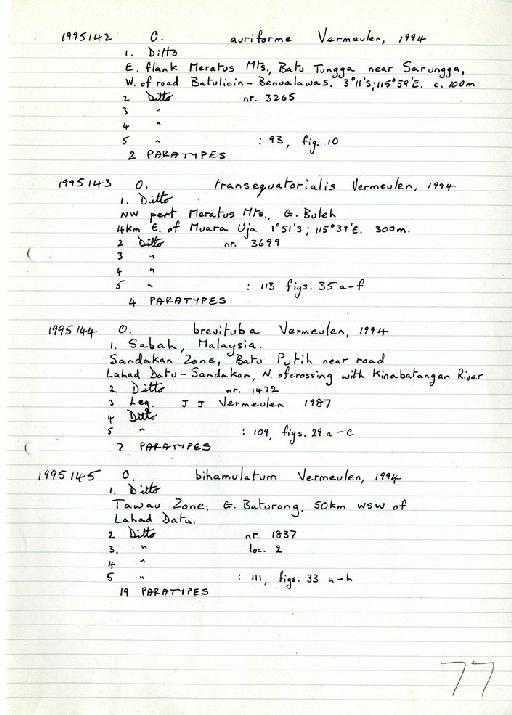 1995142 O. auriforme Vermeulen, 1994
1. Ditto
E. flank Meratus Mts, Batu Tungga near Sarungga,
W. of road Batulicin - Benualawas. 3°11's; 115°59'E. c. 100m
2 Ditto nr. 3265
3 "
4 "
5 " : 93, fig. 10
2 PARATYPES
1995143 O. transequatorialis Vermeulen, 1994
1. Ditto
NW part Meratus Mts., G. Buleh
4km E. of Muara Uja 1°51's; 115°39'E. 300m.
2 Ditto nr. 3699
3 "
4 "
5 " : 113 figs. 35 a-f
4 PARATYPES
1995144 O. brevituba Vermeulen, 1994
1. Sabah, Malaysia.
Sandakan Zone, Batu Putih near road
Lahad Datu - Sandakan, N. of crossing with Kinabatangan River
2 Ditto nr. 1472
3 Leg. J J Vermeulen 1987
4 Ditto
5 " : 109, figs. 29 a-c
7 PARATYPES
1995145 O. bihamulatum Vermeulen, 1994
1. Ditto
Tawau Zone, G. Baturong, 50km WSW of
Lahad Datu.
2 Ditto nr 1837
3. " loc. 2
4 "
5 " : 111, figs. 33 a-h
19 PARATYPES
77